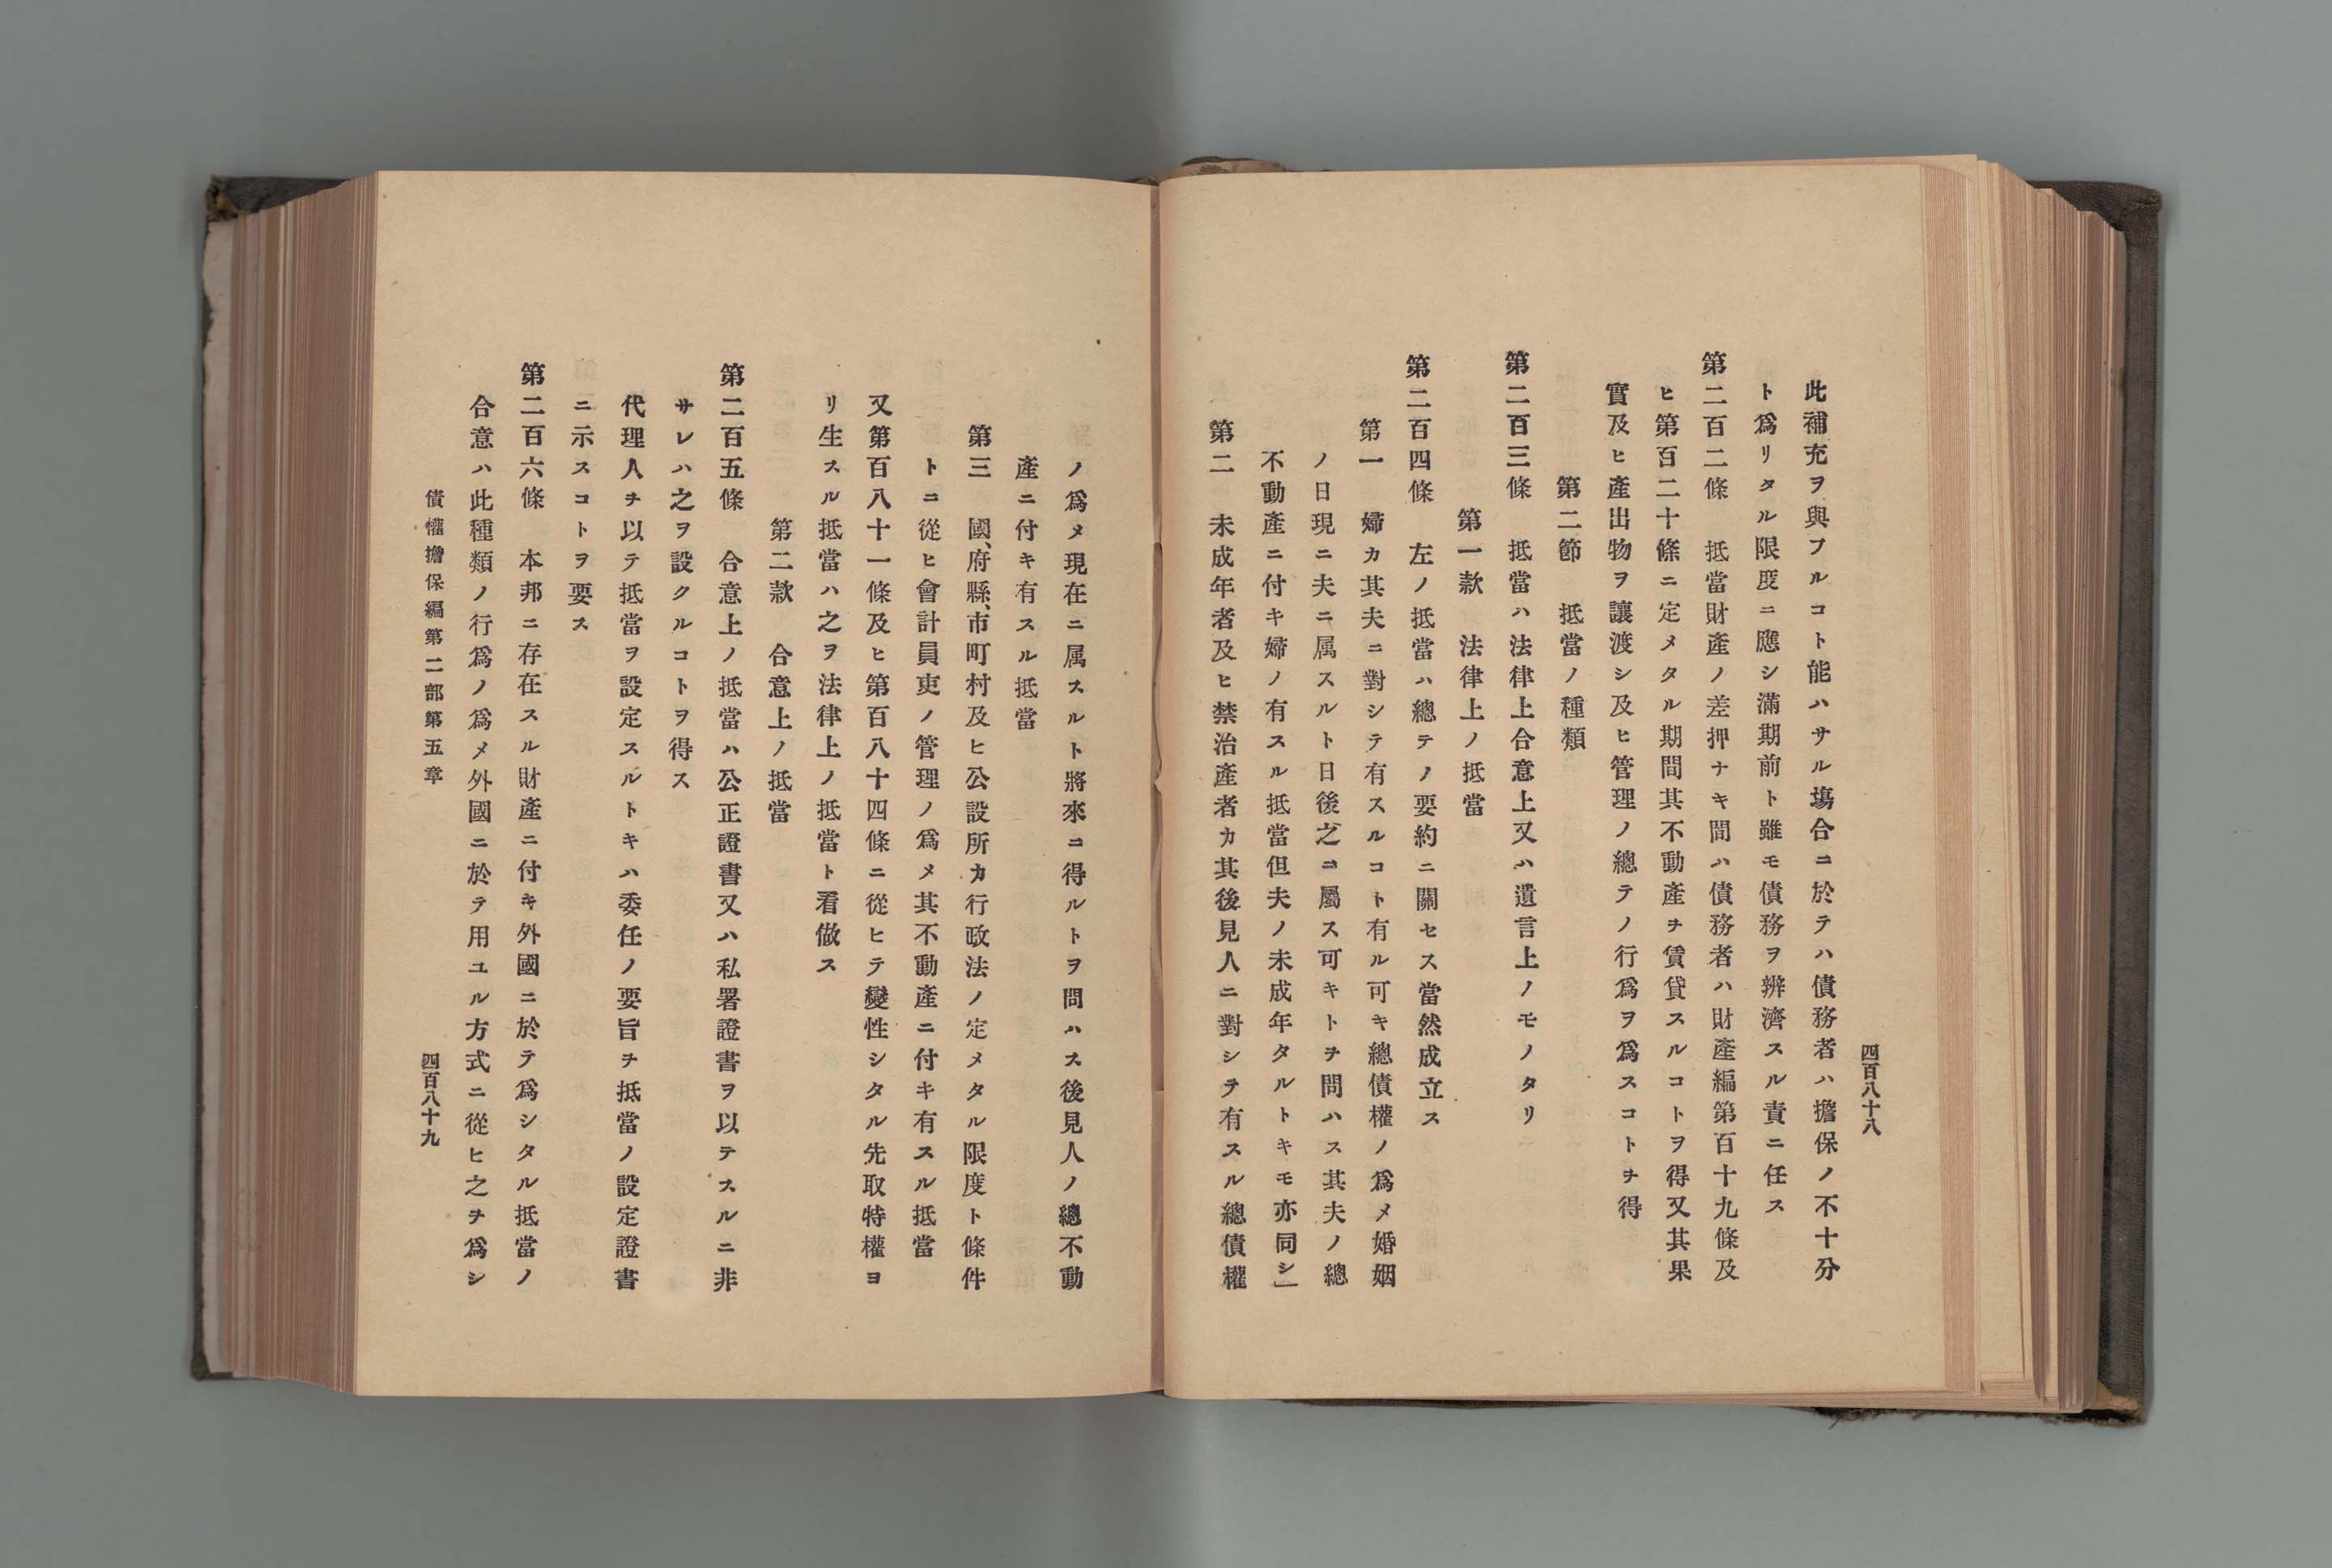 四百八十八
此補充ヲ與フルコト能ハサル塲合ニ於テハ債務者ハ擔保ノ不十分
ト爲リタル限度ニ應シ滿期前ト雖モ債務ヲ辨濟スル責ニ任ス
第二百二條　抵當財產ノ差押ナキ間ハ債務者ハ財產編第百十九條及
ヒ第百二十條ニ定メタル期間其不動產ヲ賃貸スルコトヲ得又其果
實及ヒ產出物ヲ讓渡シ及ヒ管理ノ總テノ行爲ヲ爲スコトヲ得
第二節　抵當ノ種類
第二百三條　抵當ハ法律上合意上又ハ遺言上ノモノタリ
第一款　法律上ノ抵當
第二百四條　左ノ抵當ハ總テノ要約ニ關セス當然成立ス
第一　婦カ其夫ニ對シテ有スルコト有ル可キ總債權ノ爲メ婚姻
ノ日現ニ夫ニ属スルト日後之ニ屬ス可キトヲ問ハス其夫ノ總
不動產ニ付キ婦ノ有スル抵當但夫ノ未成年タルトキモ亦同シ」
第二　未成年者及ヒ禁治產者カ其後見人ニ對シテ有スル總債權
ノ爲メ現在ニ属スルト將來ニ得ルトヲ問ハス後見人ノ總不動
產ニ付キ有スル抵當
第三　國、府縣、市町村及ヒ公設所カ行政法ノ定メタル限度ト條件
トニ從ヒ會計員吏ノ管理ノ爲メ其不動產ニ付キ有スル抵當
又第百八十一條及ヒ第百八十四條ニ從ヒテ變性シタル先取特權ヨ
リ生スル抵當ハ之ヲ法律上ノ抵當ト看做ス
第二款　合意上ノ抵當
第二百五條　合意上ノ抵當ハ公正證書又ハ私署證書ヲ以テスルニ非
サレハ之ヲ設クルコトヲ得ス
代理人ヲ以テ抵當ヲ設定スルトキハ委任ノ要旨ヲ抵當ノ設定證書
ニ示スコトヲ要ス
第二百六條　本邦ニ存在スル財產ニ付キ外國ニ於テ爲シタル抵當ノ
合意ハ此種類ノ行爲ノ爲メ外國ニ於テ用ユル方式ニ從ヒ之ヲ爲シ
債權擔保編第二部第五章
四百八十九